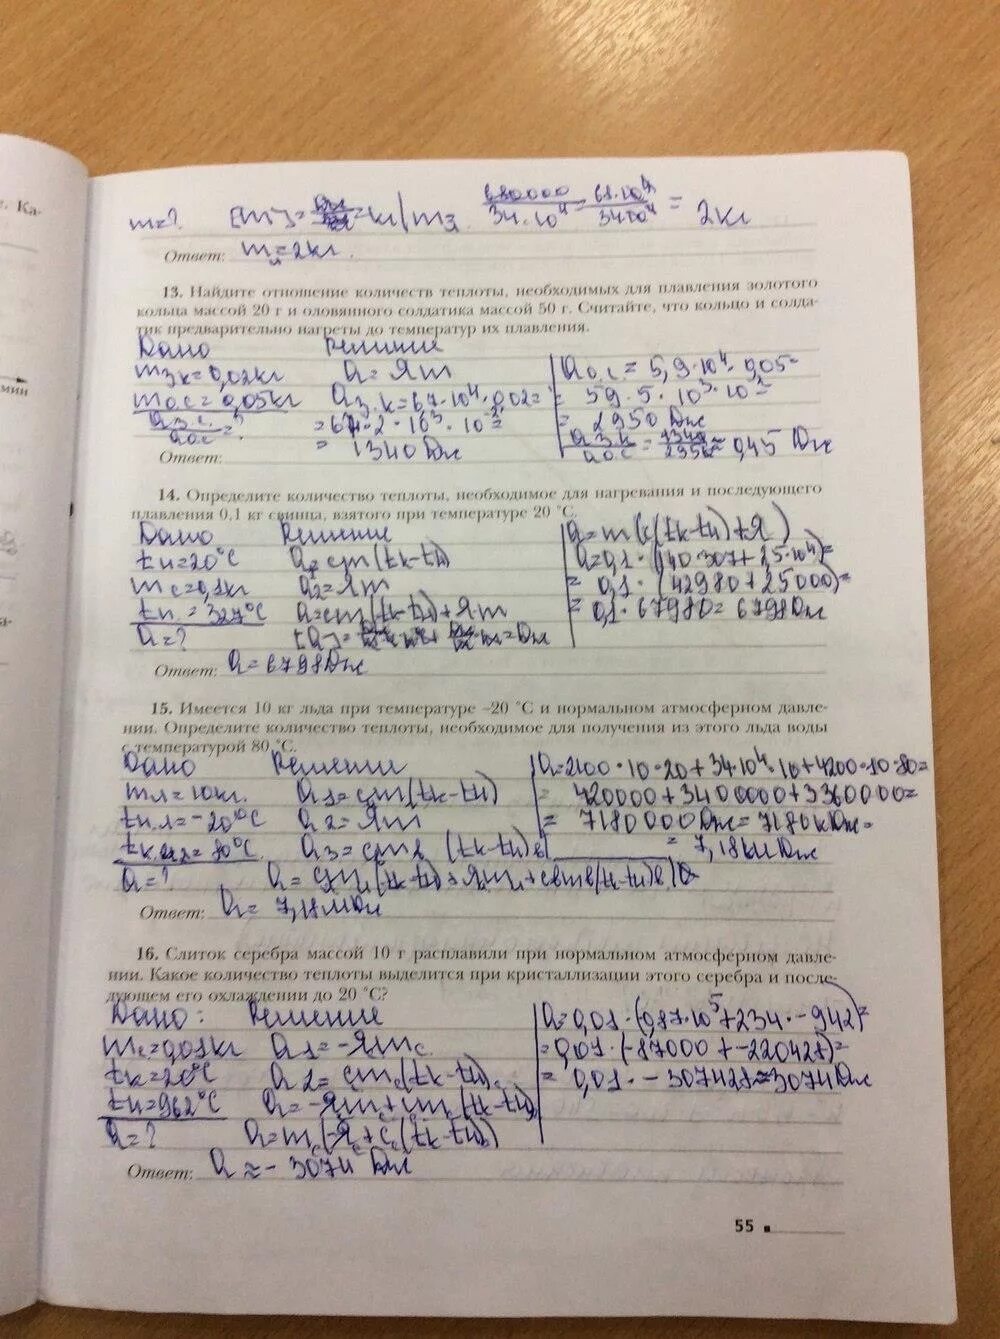 г. Ка-
мин
а-
m=? [m]= =кг | m = 680000/34·10⁴ = 68·10⁴/34·10⁴ = 2кг
Ответ: m = 2кг.
13. Найдите отношение количеств теплоты, необходимых для плавления золотого
кольца массой 20 г и оловянного солдатика массой 50 г. Считайте, что кольцо и солда-
тик предварительно нагреты до температур их плавления.
Дано Решение
mз.к=0,02кг Q=λm
mо.с=0,05кг Qз.к=67·10⁴·0,02=
= 67·2·10³·10⁻²=
= 1340Дж
Qо.с.= 5,9·10⁴·0,05=
= 59·5·10³·10⁻²=
= 2950Дж
Ответ:
14. Определите количество теплоты, необходимое для нагревания и последующего
плавления 0,1 кг свинца, взятого при температуре 20 °С.
Дано Решение
tн=20°C Q=cm(tк-tн)
mс=0,1кг Q2=λm
tп.=327°C Q=cm(tк-tн)+λm
Q=?
Q=m(c(tк-tн)+λ)
Q=0,1·(140·307+2,5·10⁴)=
= 0,1·(42980+25000)=
= 0,1·67980=6798Дж
Ответ: Q=6798Дж
15. Имеется 10 кг льда при температуре –20 °С и нормальном атмосферном давле-
нии. Определите количество теплоты, необходимое для получения из этого льда воды
с температурой 80 °С.
Дано Решение
mл=10кг. Q1=cm(tк-tн)
tн.л=-20°C Q2=λm
=80°C Q3=cm (tк-tн)в
Q=?
Q=2100·10·20+34·10⁴·10+4200·10·80=
= 420000+3400000+3360000=
= 7180000Дж=7180кДж=
= 7,18МДж
Ответ: Q= 7,18МДж
16. Слиток серебра массой 10 г расплавили при нормальном атмосферном давле-
нии. Какое количество теплоты выделится при кристаллизации этого серебра и после-
дующем его охлаждении до 20 °С?
Дано: Решение
mс=0,01кг Q1=-λmс
tк=20°C Q2=cmс(tк-tн)с
tн=962°C Q=-λm+cm(tк-tн)
Q=? Q=mс(-λс+cс(tк-tн))
Q=0,01·(0,87·10⁵+234·-942)=
=0,01·(-87000+-220428)=
= 0,01·-307428≈3074Дж
Ответ: Q≈-3074Дж
55